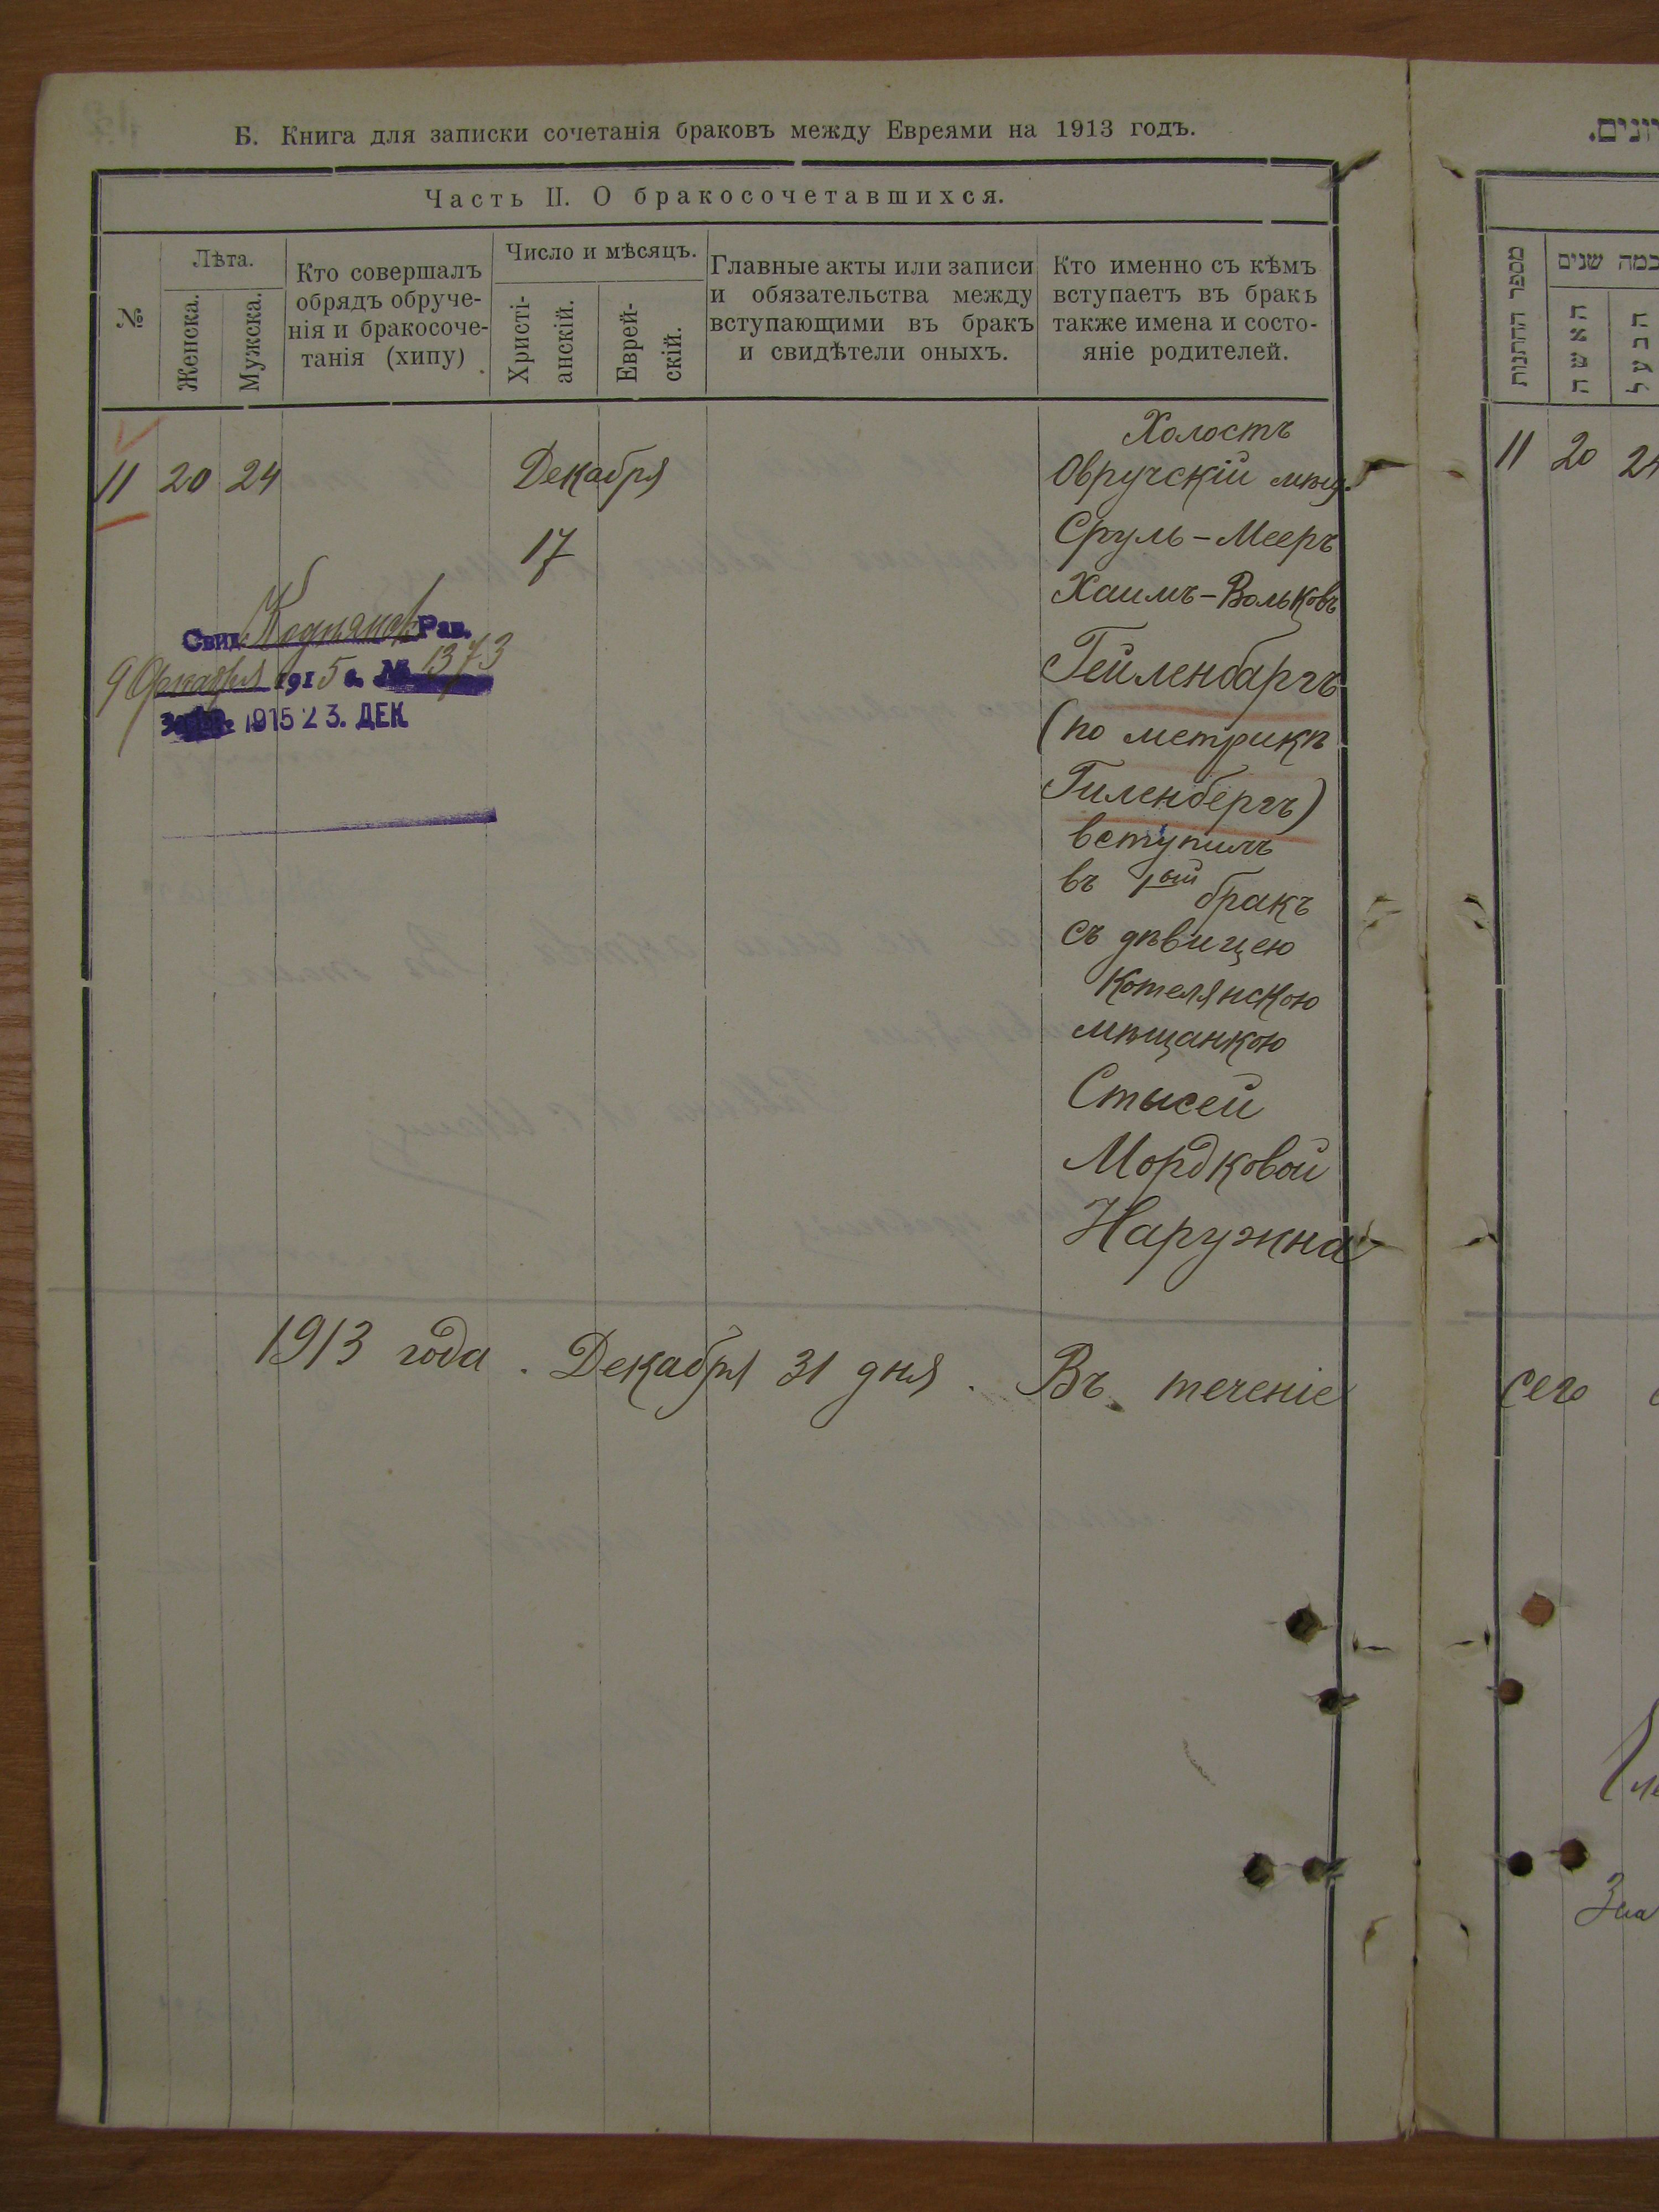 Б. Книга для записки сочетанія браковъ между Евреями на 1913 годъ.
Часть II. О бракосочетавшихся.
№
Лѣта.
Женска.
Мужска.
Кто совершалъ
обрядъ обруче-
нія и бракосоче-
танія (хипу)
Число и мѣсяцъ.
Христі-
анскій.
Еврей-
скій.
Главные акты или записи
и обязательства между
вступающими въ бракъ
и свидѣтели оныхъ.
Кто именно съ кѣмъ
вступаетъ въ бракъ
также имена и состо-
яніе родителей.
11 20 24
Декабря
17
Свид. Рав.
1915 г. № 1373
1915 23. ДЕК
Холостъ
Овручскій мѣщ.
Сруль-Мееръ
Хаимъ-Вольковъ
Гейленбаргъ
(по метрикѣ
Гиленбергъ)
вступилъ
въ 1ый бракъ
съ дѣвицею
Котелянскою
мѣщанкою
Стысей
Мордковой
Наружна
1913 года. Декабря 31 дня. Въ теченіе
מספר החתונות
כמה שנים
האשה
הבעל
11 20 24
сего